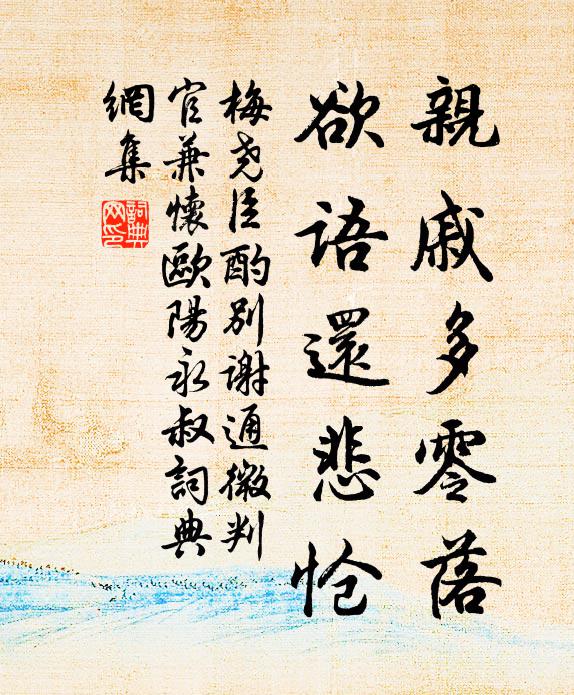 親戚多零落
欲語還悲愴
梅尧臣酌别谢通微判
官兼懷歐陽永叔詞典
網集
詞典網印